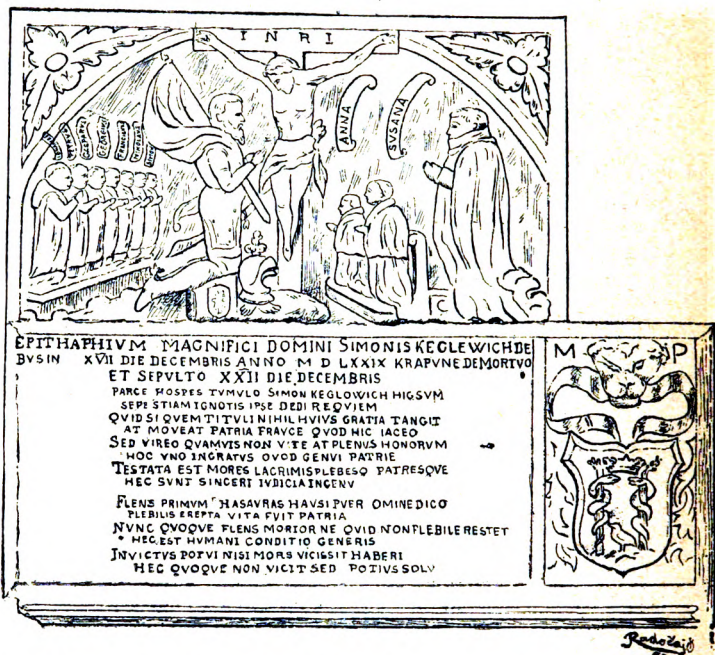 INRI
ANNA
SUSANA
EPITHAPHIVM MAGNIFICI DOMINI SIMONIS KEGLEWICH DE
BVSIN XVII DIE DECEMBRIS ANNO M D LXXIX KRAPVNE DEMORTVO
ET SEPVLTO XXII DIE DECEMBRIS
PARCE HOSPES TVMVLO SIMON KEGLOWICH HIG SVM
SEPE STIAM IGNOTIS IPSE DEDI REQVIEM
QVID SI QVEM TITVLI NIHIL HVIVS GRATIA TANGIT
AT MOVEAT PATRIA FRAVCE QVOD HIC IACEO
SED VIREO QVAMVIS NON VITE AT PLENUS HONORVM
HOC VNO INGRATVS OVOD GENVI PATRIE
TESTATA EST MORES LACRIMIS PLEBESQ PATRESQVE
HEC SVNT SINCERI IVDICIA INGENV
FLENS PRIMVM HAS AVRAS HAVSI PVER OMINE DICO
PLEBILIS EREPTA VITA FVIT PATRIA
NVNC QVOQVE FLENS MORIOR NE QVID NON FLEBILE RESTET
HEC EST HVMANI CONDITIO GENERIS
INVICTVS POTVI NISI MORS VICISSIT HABERI
HEC QVOQVE NON VICIT SED POTIVS SOLV
M P